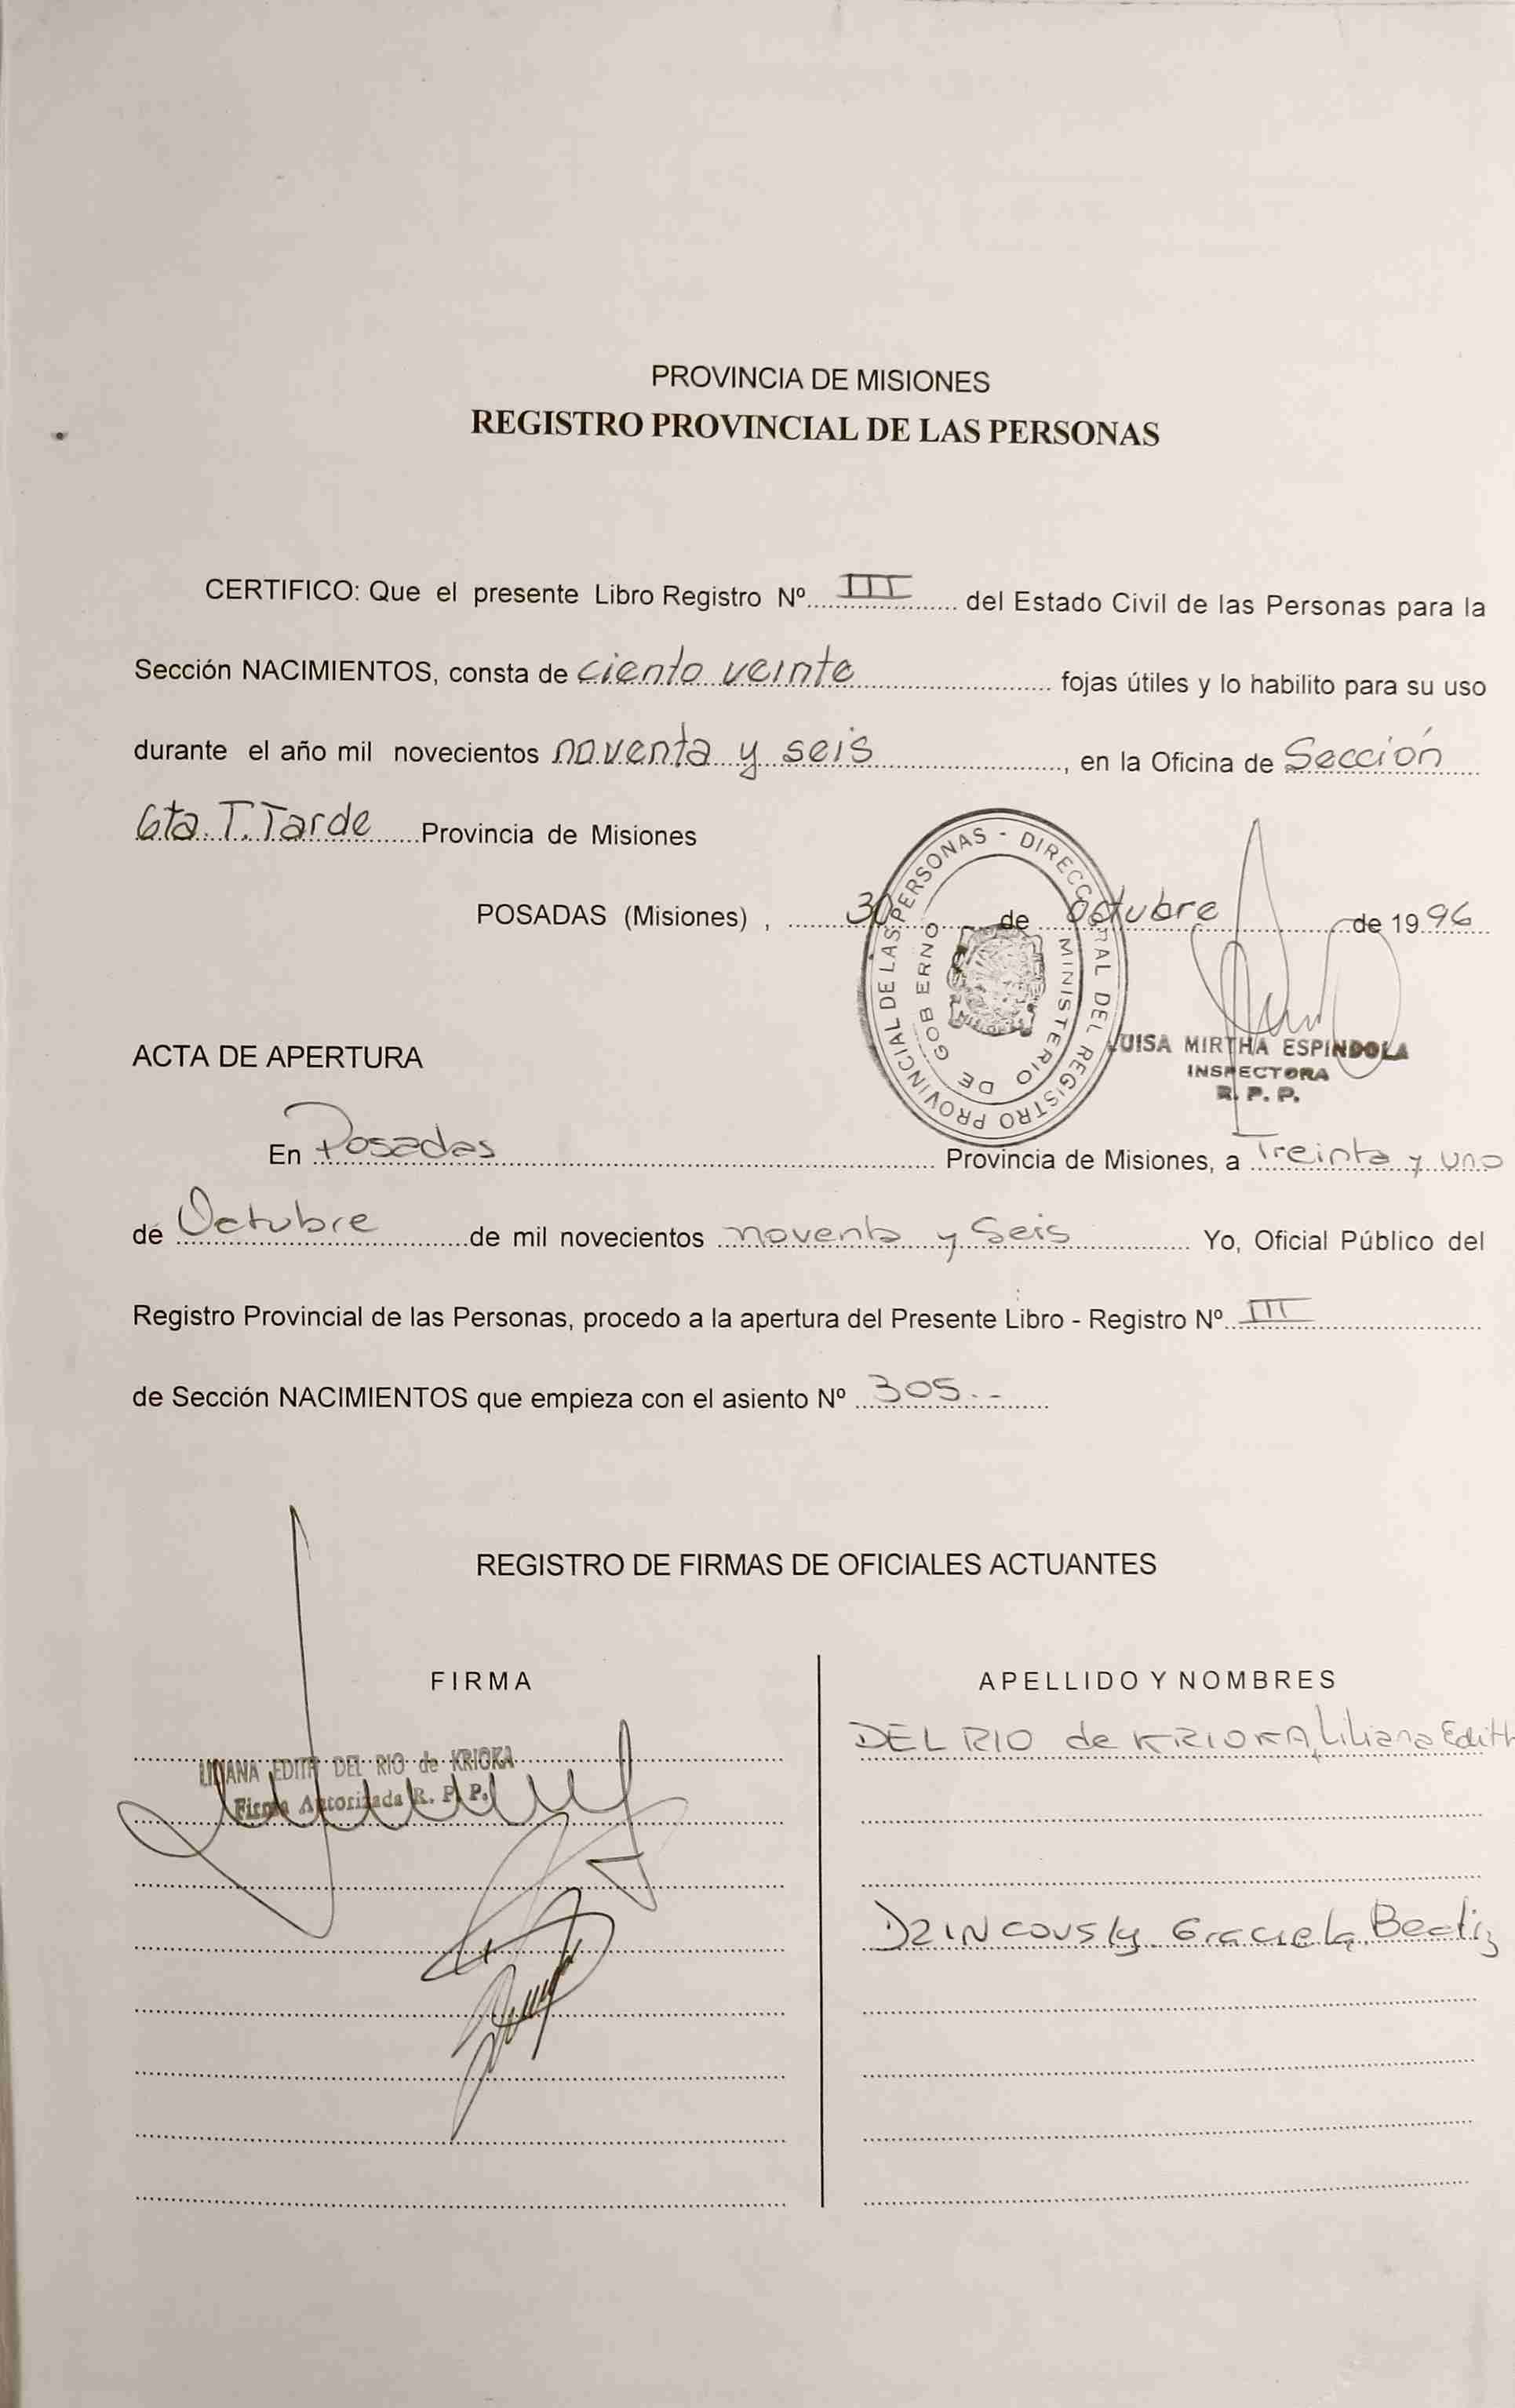 PROVINCIA DE MISIONES
REGISTRO PROVINCIAL DE LAS PERSONAS
CERTIFICO: Que el presente Libro Registro Nº III del Estado Civil de las Personas para la
Sección NACIMIENTOS, consta de ciento veinte fojas útiles y lo habilito para su uso
durante el año mil novecientos noventa y seis, en la Oficina de Sección
6ta. T. Tarde Provincia de Misiones
POSADAS (Misiones), 30 de octubre de 1996
DIRECC RAL DEL REGISTRO PROVINCIAL DE LAS PERSONAS -
MINISTERIO DE GOBIERNO
LUISA MIRTHA ESPINDOLA
INSPECTORA
R. P. P.
ACTA DE APERTURA
En Posadas Provincia de Misiones, a Treinta y uno
de Octubre de mil novecientos noventa y Seis Yo, Oficial Público del
Registro Provincial de las Personas, procedo a la apertura del Presente Libro - Registro Nº III
de Sección NACIMIENTOS que empieza con el asiento Nº 305.-
REGISTRO DE FIRMAS DE OFICIALES ACTUANTES
FIRMA
APELLIDO Y NOMBRES
DEL RIO de KRIOKA, Liliana Edith
LILIANA EDITH DEL RIO de KRIOKA
Firma Autorizada R. P. P.
Graciela Beatriz